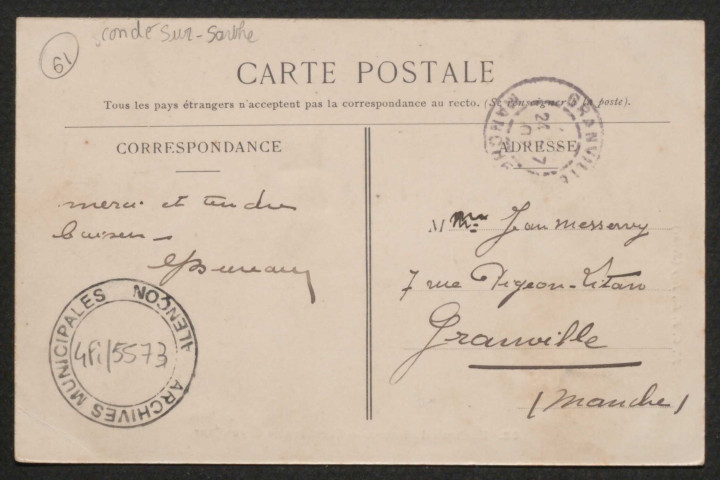 61
condé sur-Sarthe
CARTE POSTALE
Tous les pays étrangers n'acceptent pas la correspondance au recto. (Se renseigner à la poste).
CORRESPONDANCE
ADRESSE
GRANVILLE
MANCHE
merci et tendre
baiser
M Mme Jean Messervy
7 rue Pigeon-Litan
Granville
(Manche)
ARCHIVES MUNICIPALES ALENÇON
4Fi/5573